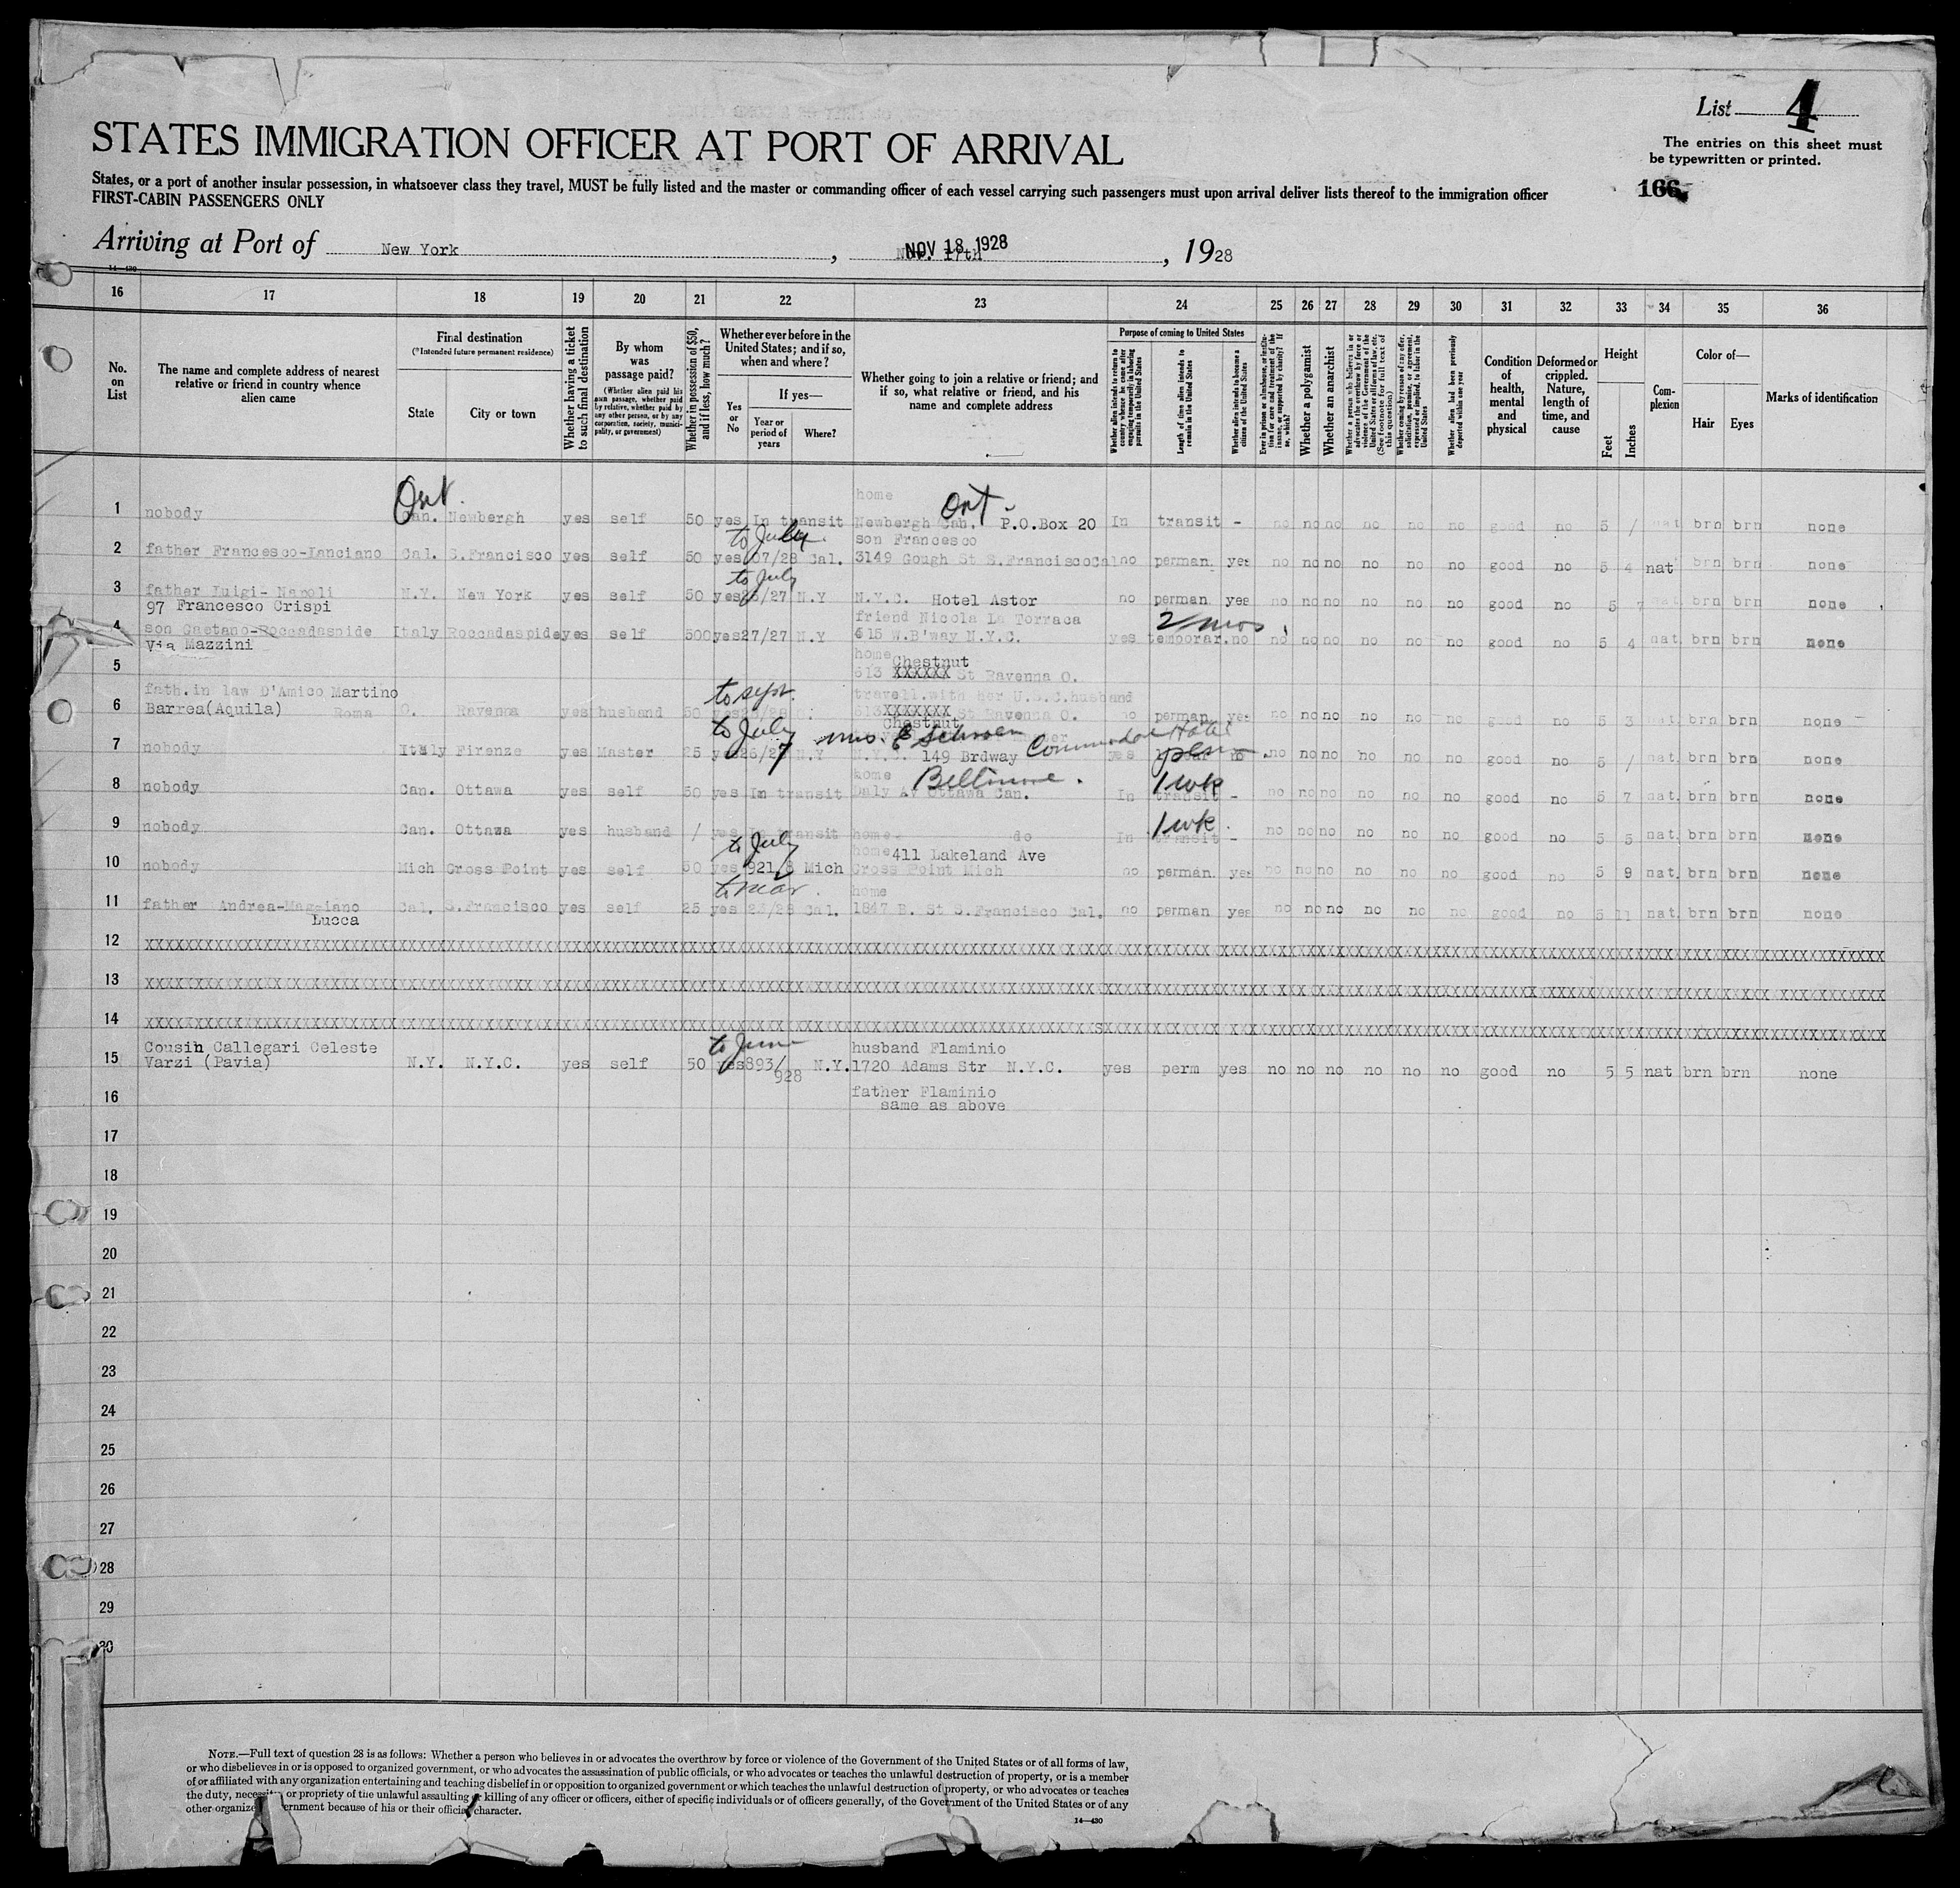 List 4
The entries on this sheet must
be typewritten or printed.
166
STATES IMMIGRATION OFFICER AT PORT OF ARRIVAL
States, or a port of another insular possession, in whatsoever class they travel, MUST be fully listed and the master or commanding officer of each vessel carrying such passengers must upon arrival deliver lists thereof to the immigration officer
FIRST-CABIN PASSENGERS ONLY
Arriving at Port of New York, NOV 18 1928 Nov. 17th, 1928
14—430
16 17 18 19 20 21 22 23 24 25 26 27 28 29 30 31 32 33 34 35 36
No. on List
The name and complete address of nearest relative or friend in country whence alien came
Final destination
(*Intended future permanent residence)
State
City or town
Whether having a ticket to such final destination
By whom was passage paid?
(Whether alien paid his own passage, whether paid by relative, whether paid by any other person, or by any corporation, society, municipality, or government)
Whether in possession of $50, and if less, how much?
Whether ever before in the United States; and if so, when and where?
Yes or No
If yes—
Year or period of years
Where?
Whether going to join a relative or friend; and if so, what relative or friend, and his name and complete address
Purpose of coming to United States
Whether alien intends to return to country whence he came after engaging temporarily in laboring pursuits in the United States
Length of time alien intends to remain in the United States
Whether alien intends to become a citizen of the United States
Ever in prison or almshouse, or institution for care and treatment of the insane, or supported by charity? If so, which?
Whether a polygamist
Whether an anarchist
Whether a person who believes in or advocates the overthrow by force or violence of the Government of the United States or all forms of law, etc. (See footnote for full text of this question)
Whether coming by reason of any offer, solicitation, promise, or agreement, expressed or implied, to labor in the United States
Whether alien had been previously deported within one year
Condition of health, mental and physical
Deformed or crippled. Nature, length of time, and cause
Height
Feet
Inches
Complexion
Color of—
Hair
Eyes
Marks of identification
Ont. home Ont.
1 nobody Can. Newbergh yes self 50 yes In transit Newbergh Can. P.O.Box 20 In transit - no no no no no no good no 5 / nat brn brn none
to July son Francesco
2 father Francesco-Lanciano Cal. S.Francisco yes self 50 yes 07/28 Cal. 3149 Gough St S.Francisco Cal no perman yes no no no no no no good no 5 4 nat brn brn none
to July
3 father Luigi- Napoli N.Y. New York yes self 50 yes 26/27 N.Y N.Y.C. Hotel Astor no perman yes no no no no no no good no 5 7 nat brn brn none
97 Francesco Crispi friend Nicola La Torraca 2 mos
4 son Gaetano-Roccadaspide Italy Roccadaspide yes self 500 yes 27/27 N.Y 615 W.B'way N.Y.C. yes temporar. no no no no no no no good no 5 4 nat. brn brn none
Via Mazzini
home Chestnut
5 613 XXXXXX St Ravenna O.
fath.in law D'Amico Martino to sept. travell.with her U.S.C.husband
6 Barrea(Aquila) Roma O. Ravenna yes husband 50 yes 613 XXXXXXX St Ravenna O. no perman yes no no no no no no good no 5 3 nat. brn brn none
Chestnut
to July Mrs. E Schroen Commodore Hotel
7 nobody Italy Firenze yes Master 25 yes 26/27 N.Y N.Y.C. 149 Brdway yes no no no no no no no good no 5 / nat. brn brn none
home Beltimore. 1 wk
8 nobody Can. Ottawa yes self 50 yes In transit Daly Av Ottawa Can. In transit - no no no no no no good no 5 7 nat. brn brn none
1 wk.
9 nobody Can. Ottawa yes husband / yes In transit home- do In transit - no no no no no no good no 5 5 nat. brn brn none
to July home 411 Lakeland Ave
10 nobody Mich Cross Point yes self 50 yes 921/8 Mich Cross Point Mich no perman. yes no no no no no no good no 5 9 nat. brn brn none
to mar. home
11 father Andrea-Maggiano Cal. S.Francisco yes self 25 yes 23/28 Cal. 1847 B. St S.Francisco Cal. no perman yes no no no no no no good no 5 11 nat. brn brn none
Lucca
12
13
14
Cousin Callegari Celeste to June husband Flaminio
15 Varzi (Pavia) N.Y. N.Y.C. yes self 50 yes 893/928 N.Y. 1720 Adams Str N.Y.C. yes perm yes no no no no no no good no 5 5 nat brn brn none
16 father Flaminio
same as above
17
18
19
20
21
22
23
24
25
26
27
28
29
30
NOTE.—Full text of question 28 is as follows: Whether a person who believes in or advocates the overthrow by force or violence of the Government of the United States or of all forms of law,
or who disbelieves in or is opposed to organized government, or who advocates the assassination of public officials, or who advocates or teaches the unlawful destruction of property, or is a member
of or affiliated with any organization entertaining and teaching disbelief in or opposition to organized government or which teaches the unlawful destruction of property, or who advocates or teaches
the duty, necessity, or propriety of the unlawful assaulting or killing of any officer or officers, either of specific individuals or of officers generally, of the Government of the United States or of any
other organized government because of his or their official character.
14—430